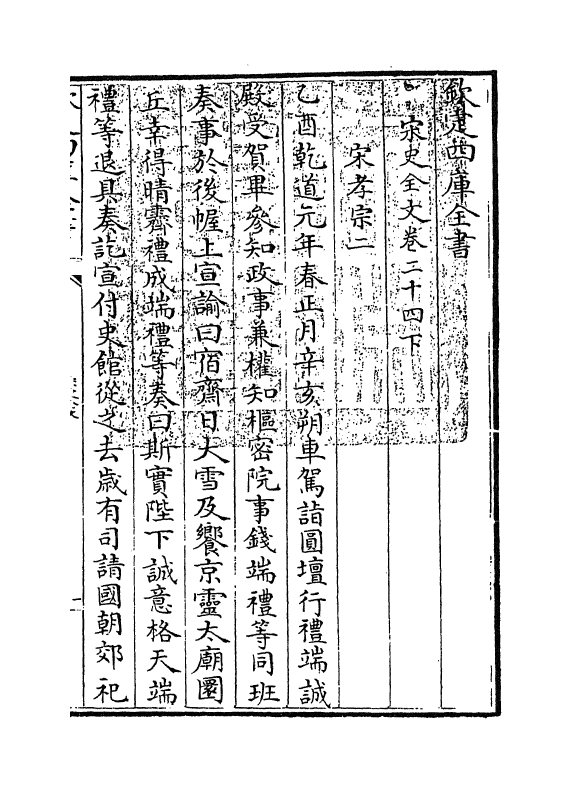 欽定四庫全書
宋史全文卷二十四下
宋孝宗二
乙酉乾道元年春正月辛亥朔車駕詣圓壇行禮端誠
殿受賀畢參知政事兼權知樞密院事錢端禮等同班
奏事於後幄上宣諭曰宿齋日大雪及饗景靈太廟圜
丘幸得晴霽禮成端禮等奏曰斯實陛下誠意格天端
禮等退具奏訖宣付史館從之去歲有司請國朝郊祀